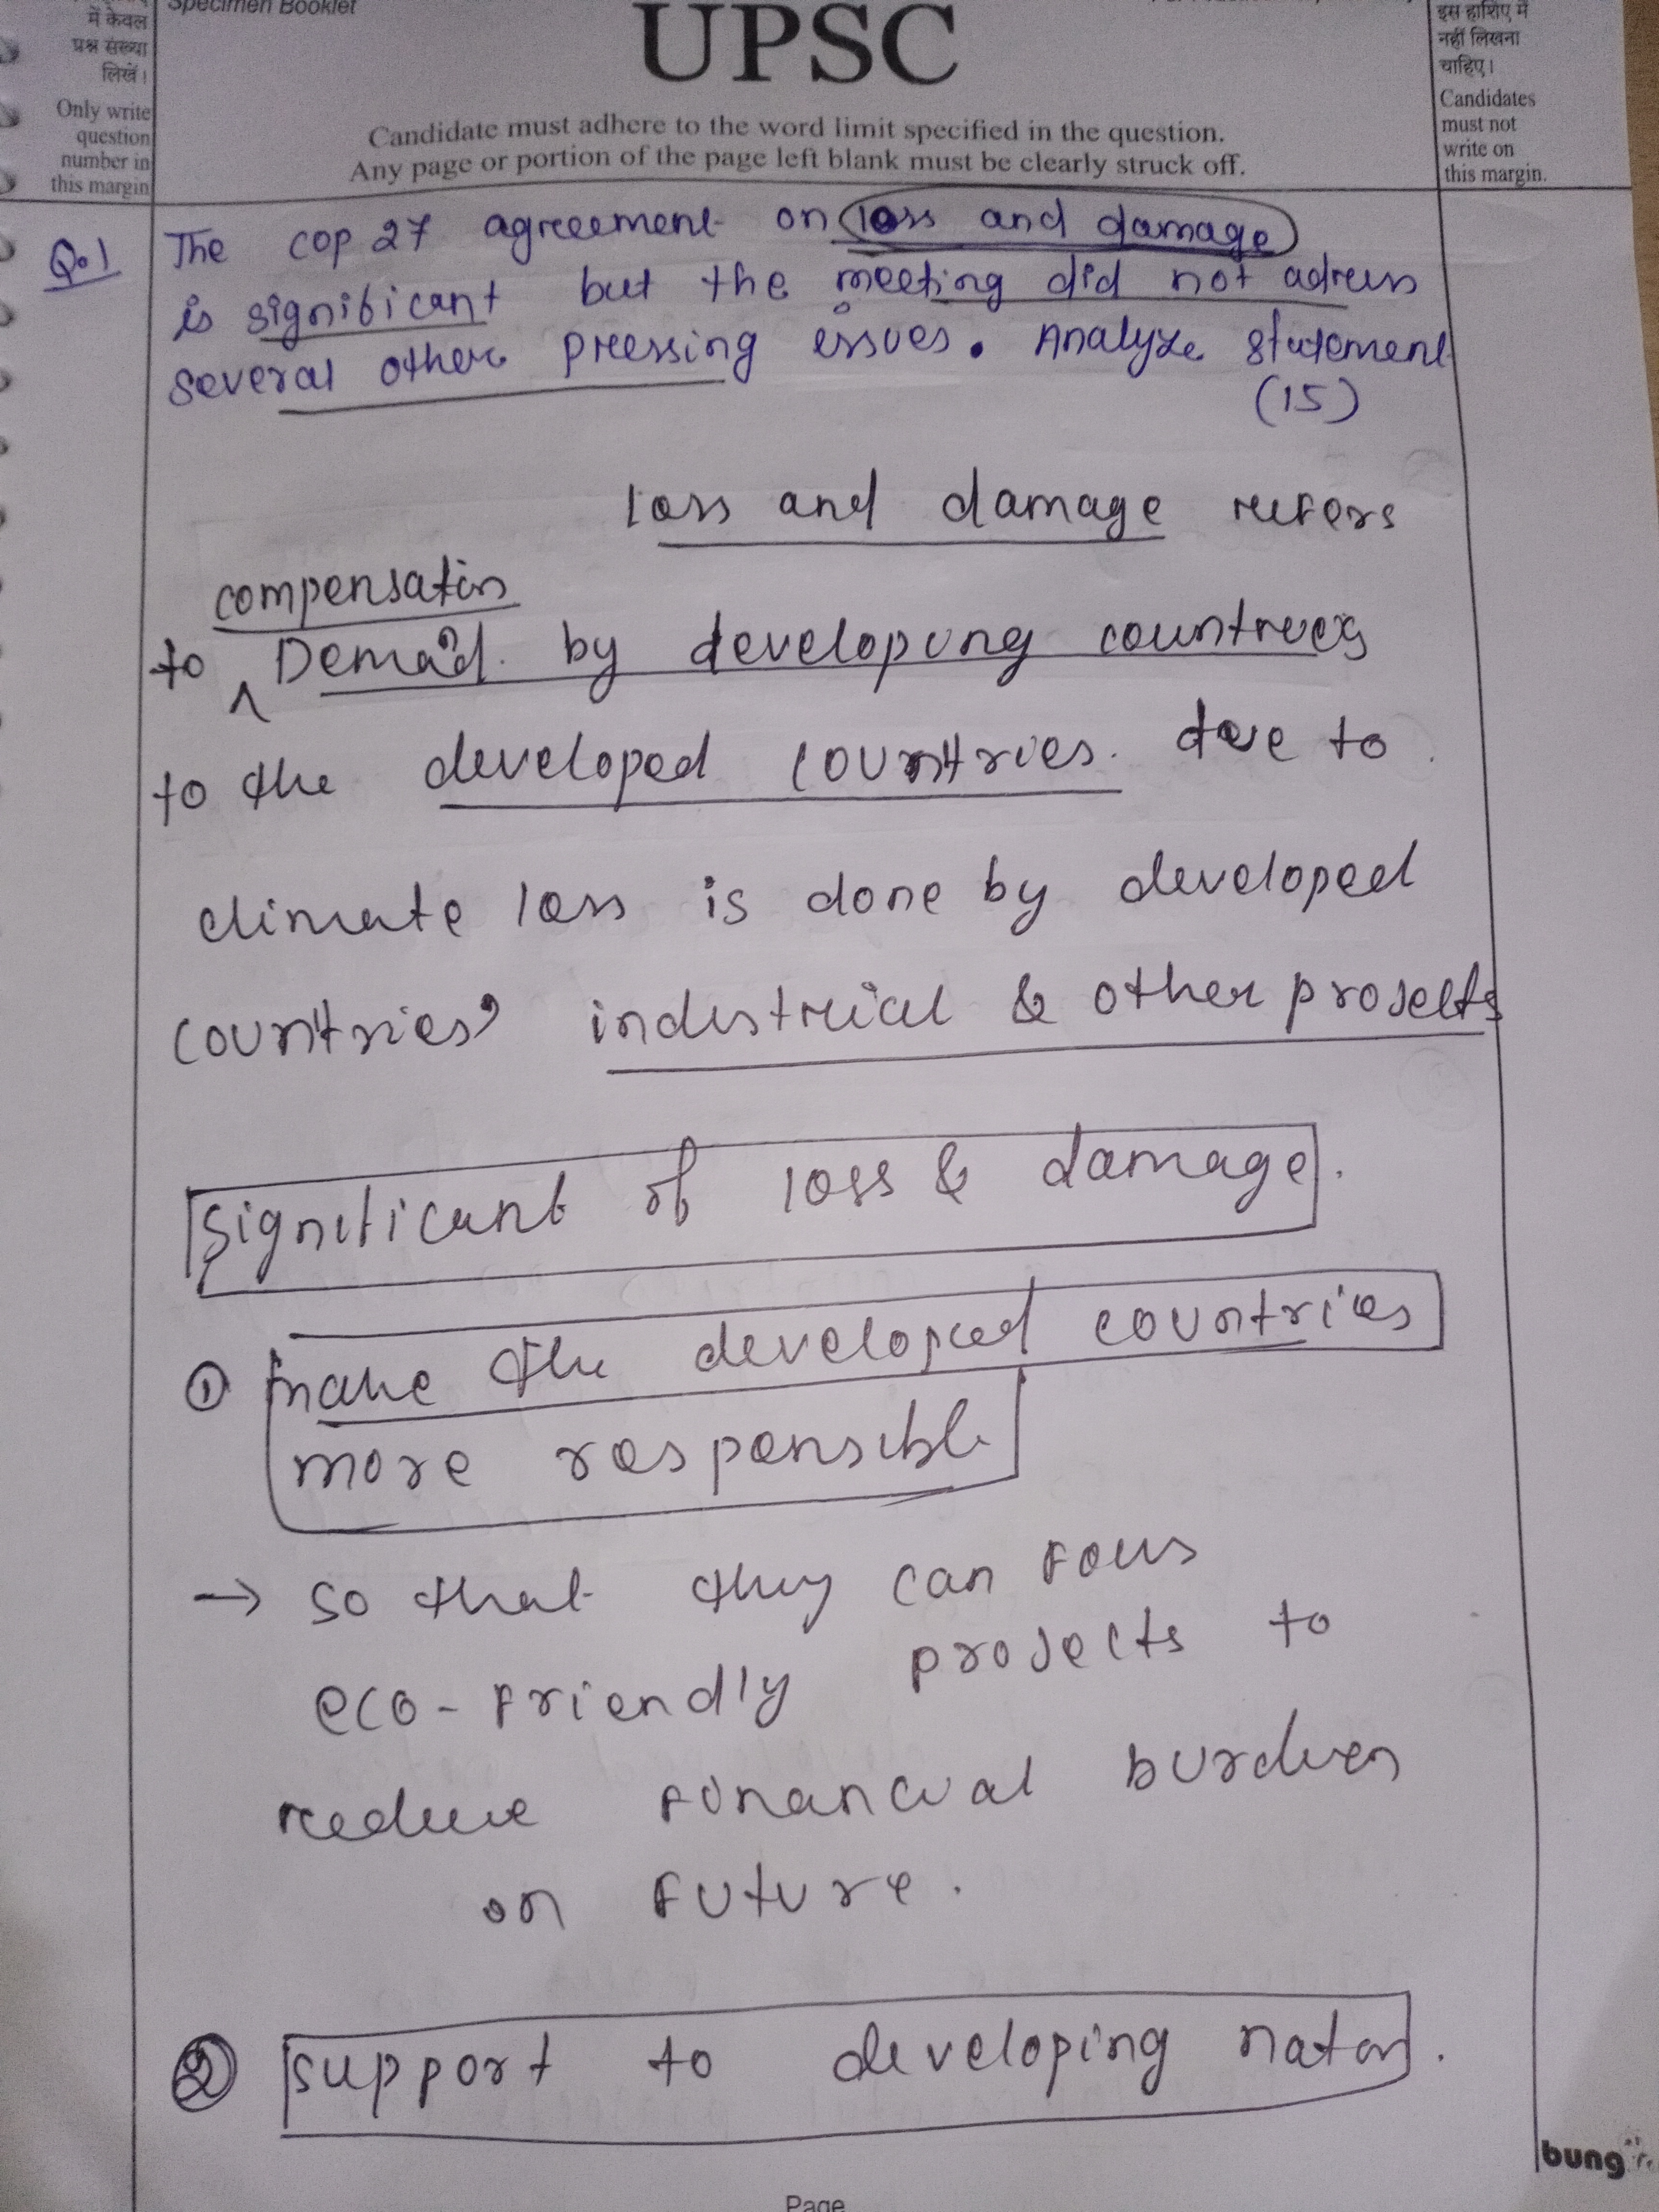 में केवल
प्रश्न संख्या
लिखें।
Only write
question
number in
this margin
Specimen Booklet
UPSC
Candidate must adhere to the word limit specified in the question.
Any page or portion of the page left blank must be clearly struck off.
इस हाशिए में
नहीं लिखना
चाहिए।
Candidates
must not
write on
this margin.
Q.1 The cop 27 agreement on loss and damage
is significant but the meeting did not adress
several other pressing issues. Analyze statement
(15)
loss and damage refers
compensation
to ^ Demand by developing countries
to the developed countries. due to
climate loss is done by developed
countries' industrial & other projects
Significant of loss & damage.
① make the developed countries
more responsible
→ so that they can focus
eco-friendly projects to
reduce financial burden
on future.
② support to developing naton.
Page